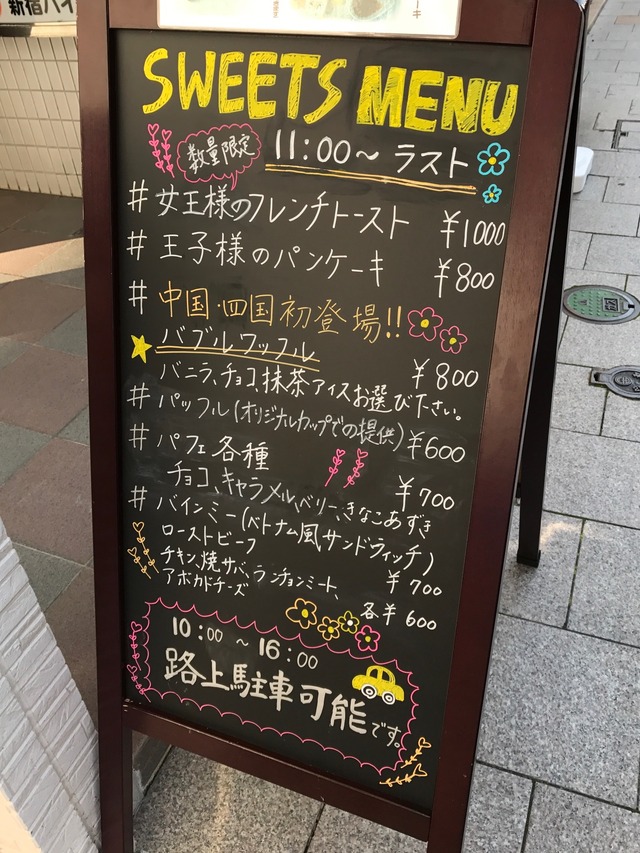 新宿バイ
ーキ
SWEETS MENU
数量限定
11:00〜 ラスト
# 女王様のフレンチトースト ¥1000
# 王子様のパンケーキ ¥800
# 中国・四国初登場!!
バブルワッフル ¥800
バニラ、チョコ、抹茶アイスお選び下さい。
# パッフル(オリジナルカップでの提供) ¥600
# パフェ各種 ¥700
チョコ、キャラメル、ベリー、きなこあずき
# バインミー(ベトナム風サンドウィッチ)
ローストビーフ ¥700
チキン、焼サバ、ランチョンミート、
アボカドチーズ 各¥600
10:00 〜 16:00
路上駐車可能です。